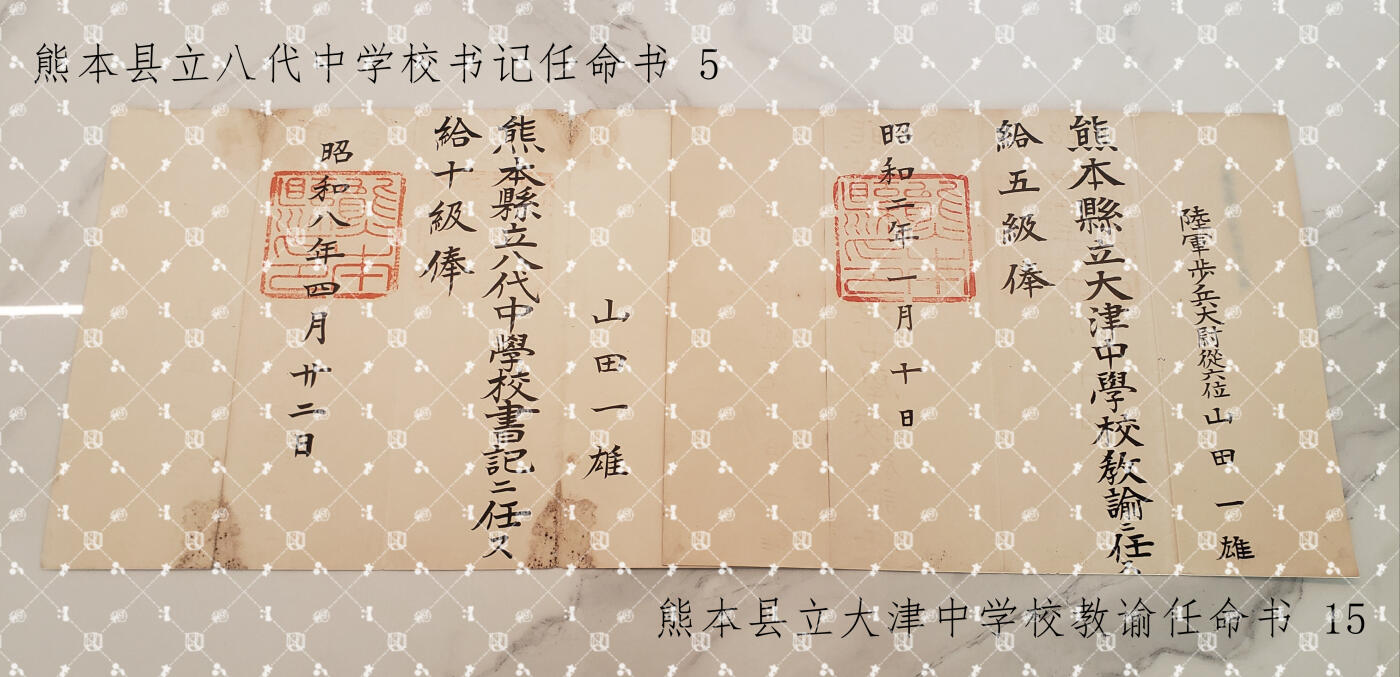 熊本县立八代中学校书记任命书 5
陸軍歩兵大尉從六位山田一雄
熊本縣立大津中學校教諭ニ任ス
給五級俸
昭和二年一月十日
山田一雄
熊本縣立八代中學校書記ニ任ス
給十級俸
昭和八年四月廿二日
熊本县立大津中学校教谕任命书 15